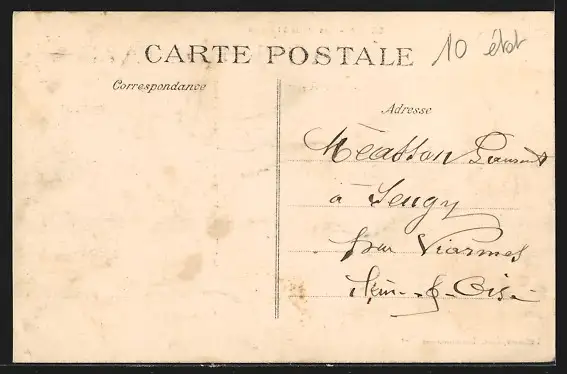 CARTE POSTALE
10 état
Correspondance
Adresse
Méasson
à Seugy
par Viarmes
Seine-&-Oise